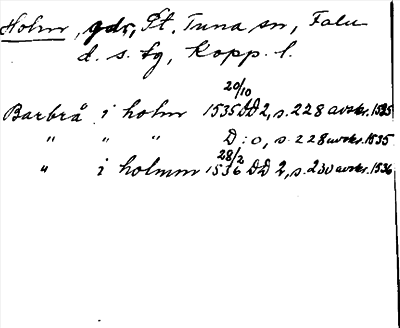 Holm, gdr, St. Tuna sn, Falu
d. s. fg, Kopp. l.
20/10
Barbrå i holm 1535 DD 2, s. 228 avskr. 1535
" " " D:o, s. 228 avskr. 1535
28/2
" i holmm 1536 DD 2, s. 230 avskr. 1536